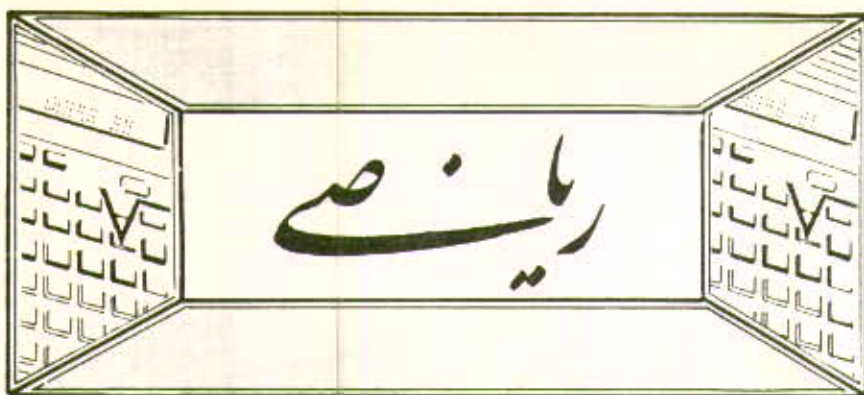 ریاضی